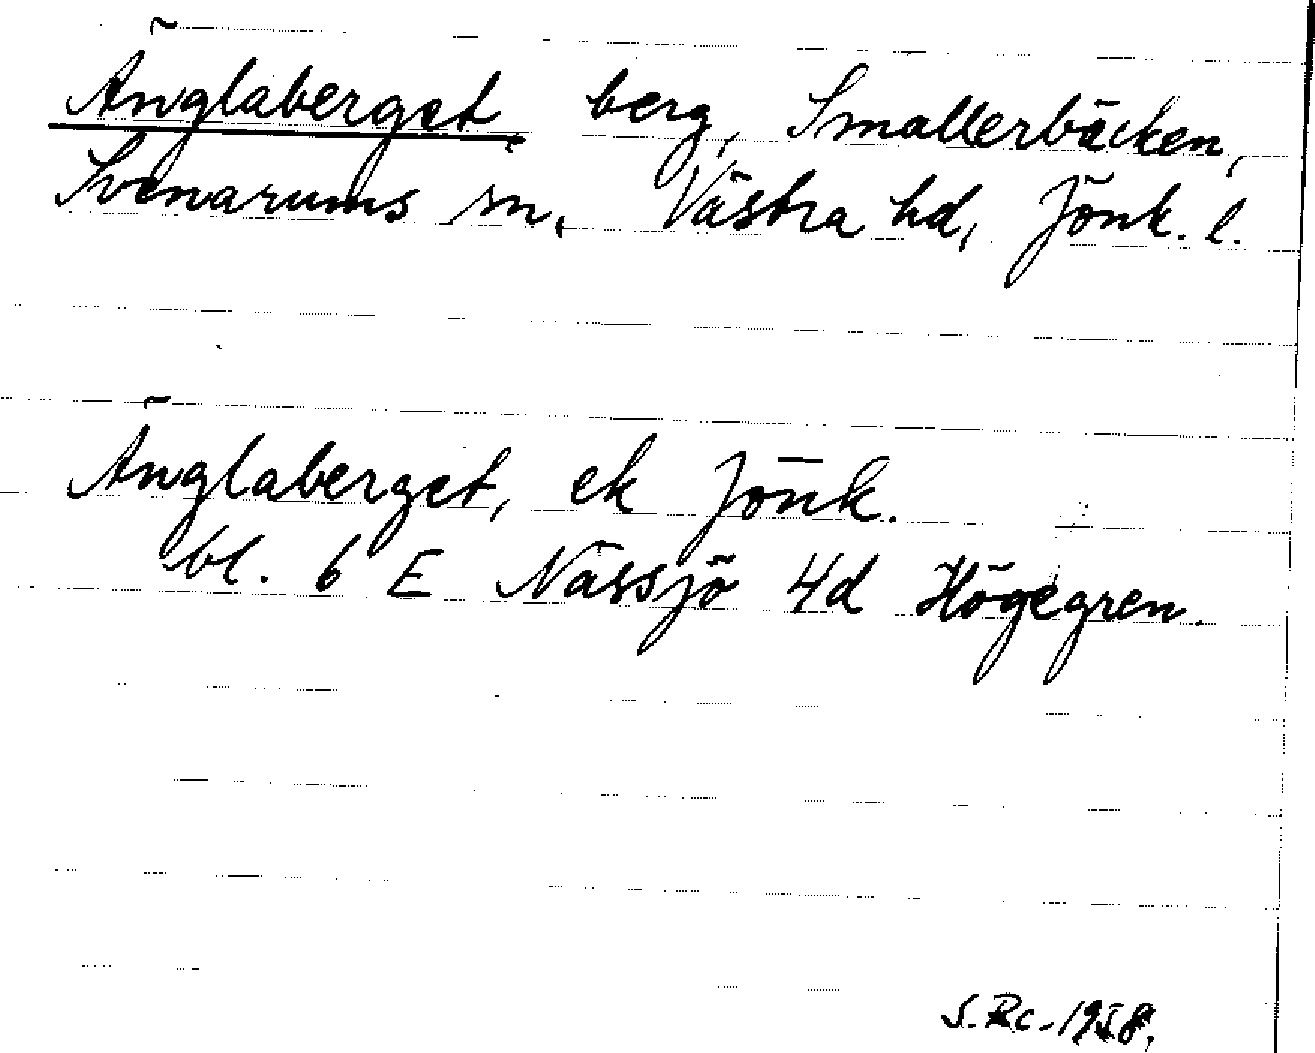 Änglaberget, berg, Smallerbäcken,
Svenarums sn, Västra hd, Jönk. l.
Änglaberget, ek Jönk.
bl. 6 E Nässjö 4d Högegren.
S.Rc-1958.